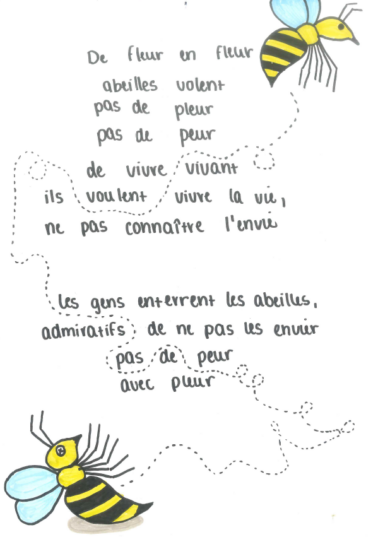 De fleur en fleur
abeilles volent
pas de pleur
pas de peur
de vivre vivant
ils voulent vivre la vie,
ne pas connaître l'envie
Les gens enterrent les abeilles,
admiratifs de ne pas les envier
pas de peur
avec pleur